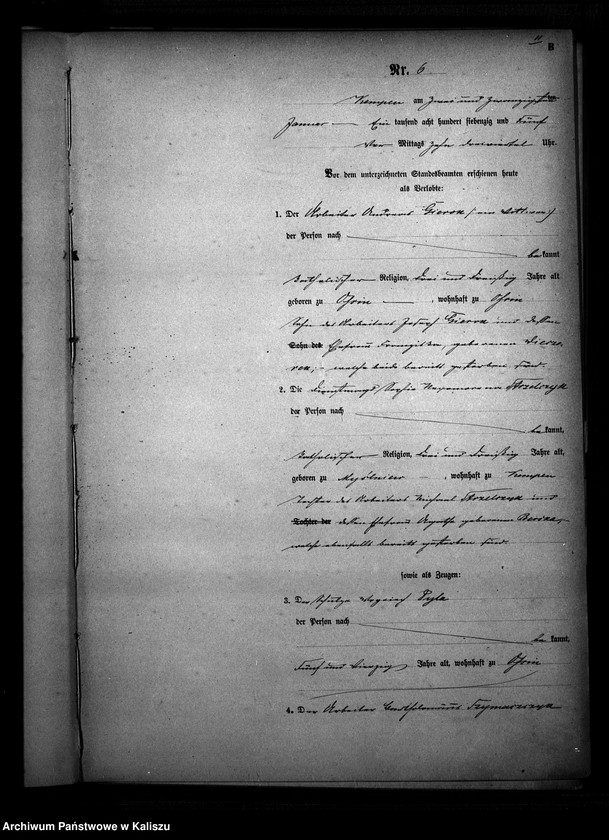 11
B
Nr. 6
Kempen am zwei und zwanzigsten
Januar Ein tausend acht hundert siebenzig und fünf
Vor Mittags zehn dreiviertel Uhr.
Vor dem unterzeichneten Standesbeamten erschienen heute
als Verlobte:
1. Der Arbeiter Andreas Gierok
der Person nach
bekannt
katholischer Religion, drei und dreißig Jahre alt
geboren zu , wohnhaft zu
Sohn des Arbeiters Josef Gierok und dessen
Sohn des Ehefrau Franziska, geborenen
welche beide bereits gestorben sind.
2. Die Sophie Strzelczyk
der Person nach
bekannt,
katholischer Religion, drei und dreißig Jahre alt,
geboren zu , wohnhaft zu Kempen
Tochter des Arbeiters Michael Strzelczyk und
Tochter der dessen Ehefrau Agathe geborenen
welche ebenfalls bereits gestorben sind.
sowie als Zeugen:
3. Der Schulze Pyla
der Person nach
bekannt,
fünf und vierzig Jahre alt, wohnhaft zu
4. Der Arbeiter Bartholomäus
Archiwum Państwowe w Kaliszu